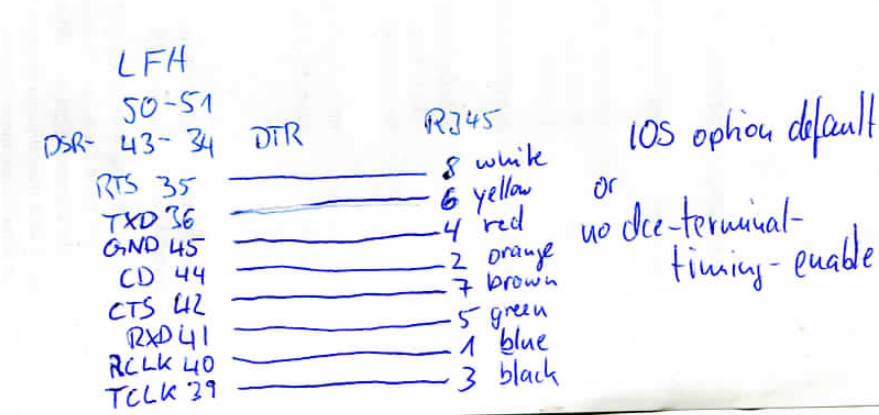 LFH
50-51
DSR- 43-34 DTR RJ45
RTS 35 8 white
TXD 36 6 yellow
GND 45 4 red
CD 44 2 orange
CTS 42 7 brown
RXD 41 5 green
RCLK 40 1 blue
TCLK 39 3 black
IOS option default
or
no dce-terminal-
timing-enable